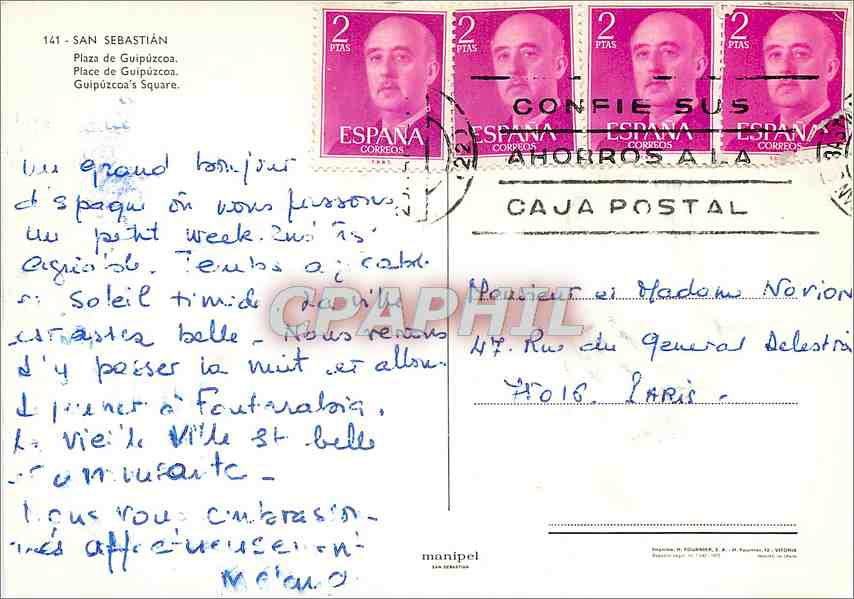 141 - SAN SEBASTIÁN
Plaza de Guipúzcoa.
Place de Guipúzcoa.
Guipúzcoa's Square.
2 PTAS
ESPAÑA
CORREOS
2 PTAS
ESPAÑA
CORREOS
2 PTAS
ESPAÑA
CORREOS
2 PTAS
ESPAÑA
CORREOS
CONFIE SUS
AHORROS A LA
CAJA POSTAL
Un grand bonjour
d'Espagne où nous passons
un petit week-end
agréable. Temps
soleil timide La ville
est assez belle - Nous venons
d'y passer la nuit et allons
à Fontarabia.
La vieille ville est belle
Nous vous embrassons
Monsieur et Madame Norion
47. Rue du General Delestrai
75016. PARIS -
CPAPHIL
manipel
SAN SEBASTIAN